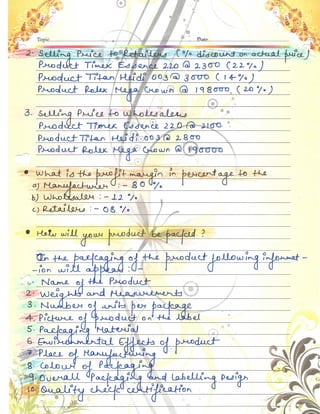 Topic Date
2. Selling Price to Retailers (% discount on actual price)
Product Timex Essence 220 @ 2300 (22%)
Product Titan Heidi 003 @ 3000 (14%)
Product Rolex Mega Crown @ 198000 (20%)
3. Selling Price to Wholesalers
Product Timex Essence 220 @ 2100
Product Titan Heidi 003 @ 2800
Product Rolex Mega Crown @ 190000
• What is the profit margin in percentage to the
a) Manufacturer :- 80%
b) Wholesaler :- 12%
c) Retailers :- 08%
• How will your product be packed ?
On the packaging of the product following informat-
-ion will appear :-
1. Name of the Product
2. Weights and Measurements
3. Number of units per package
4. Picture of product on the label
5. Packaging Material
6. Environmental Effects of product
7. Place of Manufacturing
8. Colour of Packaging
9. Overall Packaging and Labelling Design
10. Quality check certification